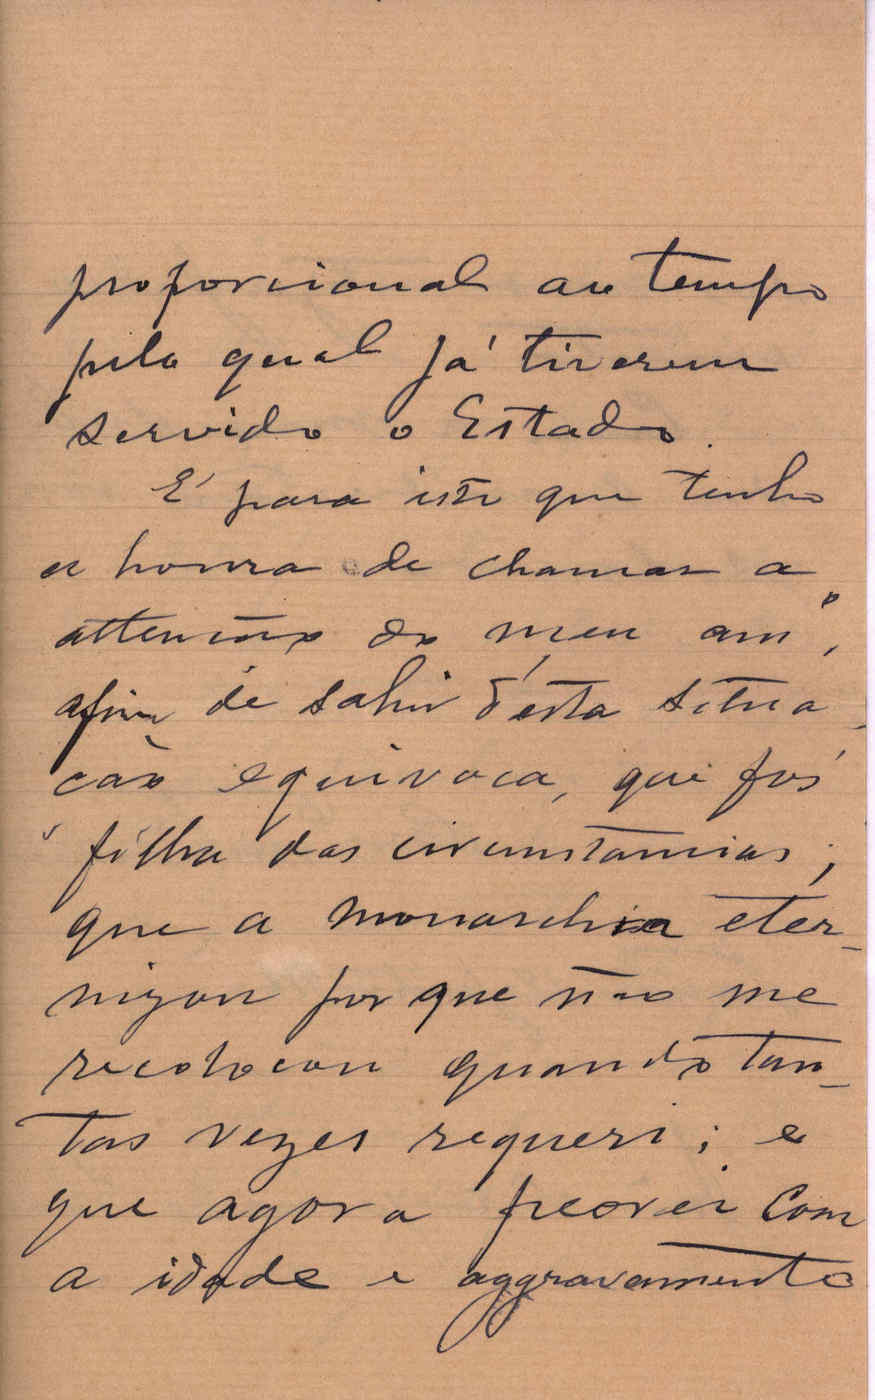 proporcional ao tempo
pelo qual já tiverem
servido o Estado.
É para isto que tenho
a honra de chamar a
attenção do meu amº,
afim de sahir d'esta situa-
ção equivoca, que foi
filha das circunstancias;
que a monarchia eter-
nizou por que não me
recolocou quando tan-
tas vezes requeri; e
que agora peorei com
a idade e aggravamento